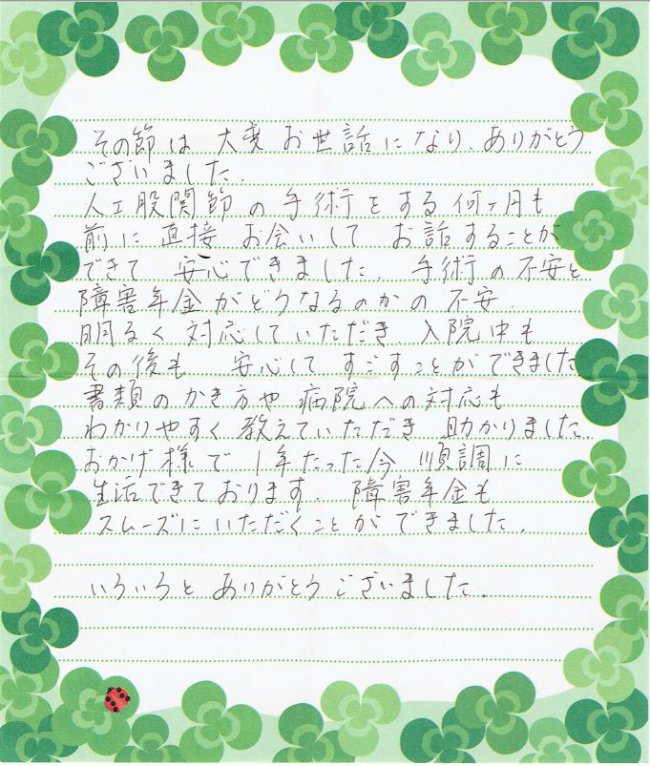 その節は 大変 お世話になり、ありがとう
ございました。
人工股関節の手術をする何ヶ月も
前に 直接 お会いして お話することが
できて 安心できました 手術の不安と
障害年金がどうなるのかの不安、
明るく対応していただき、入院中も
その後も 安心して すごすことができました
書類のかき方や 病院への対応も
わかりやすく教えていただき 助かりました
おかげ様で 1年たった今 順調に
生活できております 障害年金も
スムーズにいただくことができました。
いろいろと ありがとうございました。